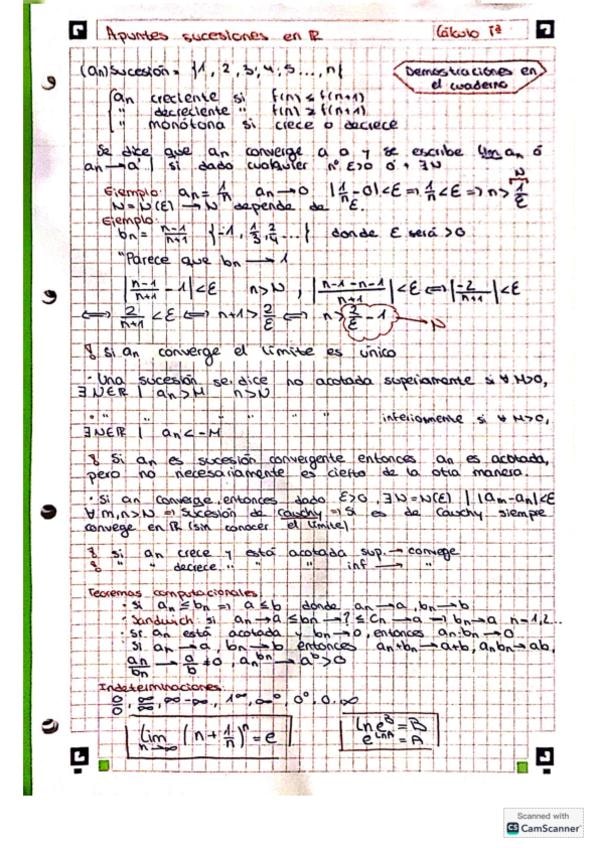 Apuntes sucesiones en ℝ Cálculo 1º
(an) Sucesión = {1, 2, 3, 4, 5..., n} Demostraciones en el cuaderno
an creciente si f(n) ≤ f(n+1)
" decreciente " f(n) ≥ f(n+1)
" monótona si crece o decrece
Se dice que an converge a a y se escribe lim an ó
an → a | si dado cualquier nº ε>0 ∃ N
Ejemplo: an = 1/n an → 0 |1/n - 0| < ε ⇒ 1/n < ε ⇒ n > 1/ε N
N = N(ε) → N depende de ε.
Ejemplo:
bn = n-1/n+1 {-1, 1/3, 2/4 ...} donde ε será >0
"Parece que bn → 1
|n-1/n+1 - 1| < ε n>N, |n-1-n-1/n+1| < ε ⇔ |-2/n+1| < ε
⇔ 2/n+1 < ε ⇔ n+1 > 2/ε ⇔ n > 2/ε - 1 → N
si an converge el límite es único
· Una sucesión se dice no acotada superiormente si ∀ M>0,
∃ N∈ℝ | an > M n>N
· " " " " " " inferiormente si ∀ M>0,
∃ N∈ℝ | an < -M
Si an es sucesión convergente entonces an es acotada,
pero no necesariamente es cierto de la otra manera.
· Si an converge, entonces dado ε>0, ∃ N = N(ε) | |am-an|<ε
∀ m,n>N ⇒ sucesión de Cauchy ⇒ Si es de Cauchy siempre
convege en ℝ (sin conocer el límite)
si an crece y está acotada sup. → convege
" " decrece " " inf → "
Teoremas computacionales
· Si an ≤ bn ⇒ a ≤ b donde an → a, bn → b
· Sandwich: si an → a ≤ bn → ? ≤ cn → a → bn → a n=1,2...
· Si an está acotada y bn → 0, entonces an·bn → 0
· Si an → a, bn → b entonces an+bn → a+b, anbn → ab,
an/bn → a/b ≠ 0, an^bn → a^b > 0
Indeterminaciones
0/0, ∞/∞, ∞-∞, 1^∞, ∞^0, 0^0, 0·∞
lim n→∞ (n + 1/n)^n = e
Ln e^B = B
e^LnA = A
Scanned with
CS CamScanner